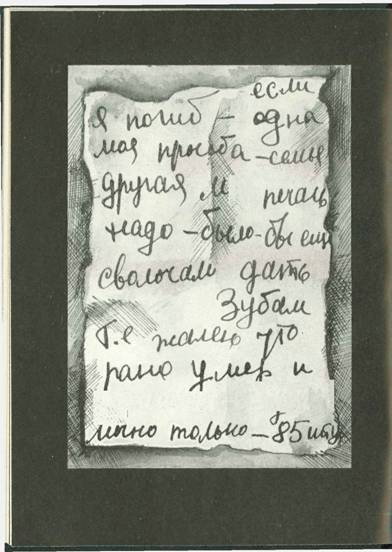 если
я погиб - одна
моя просьба - семье
другая м печать
надо - было - бы ещё
сволочам дать
Зубам
т.е жалею что
рано умер и
лично только - 85